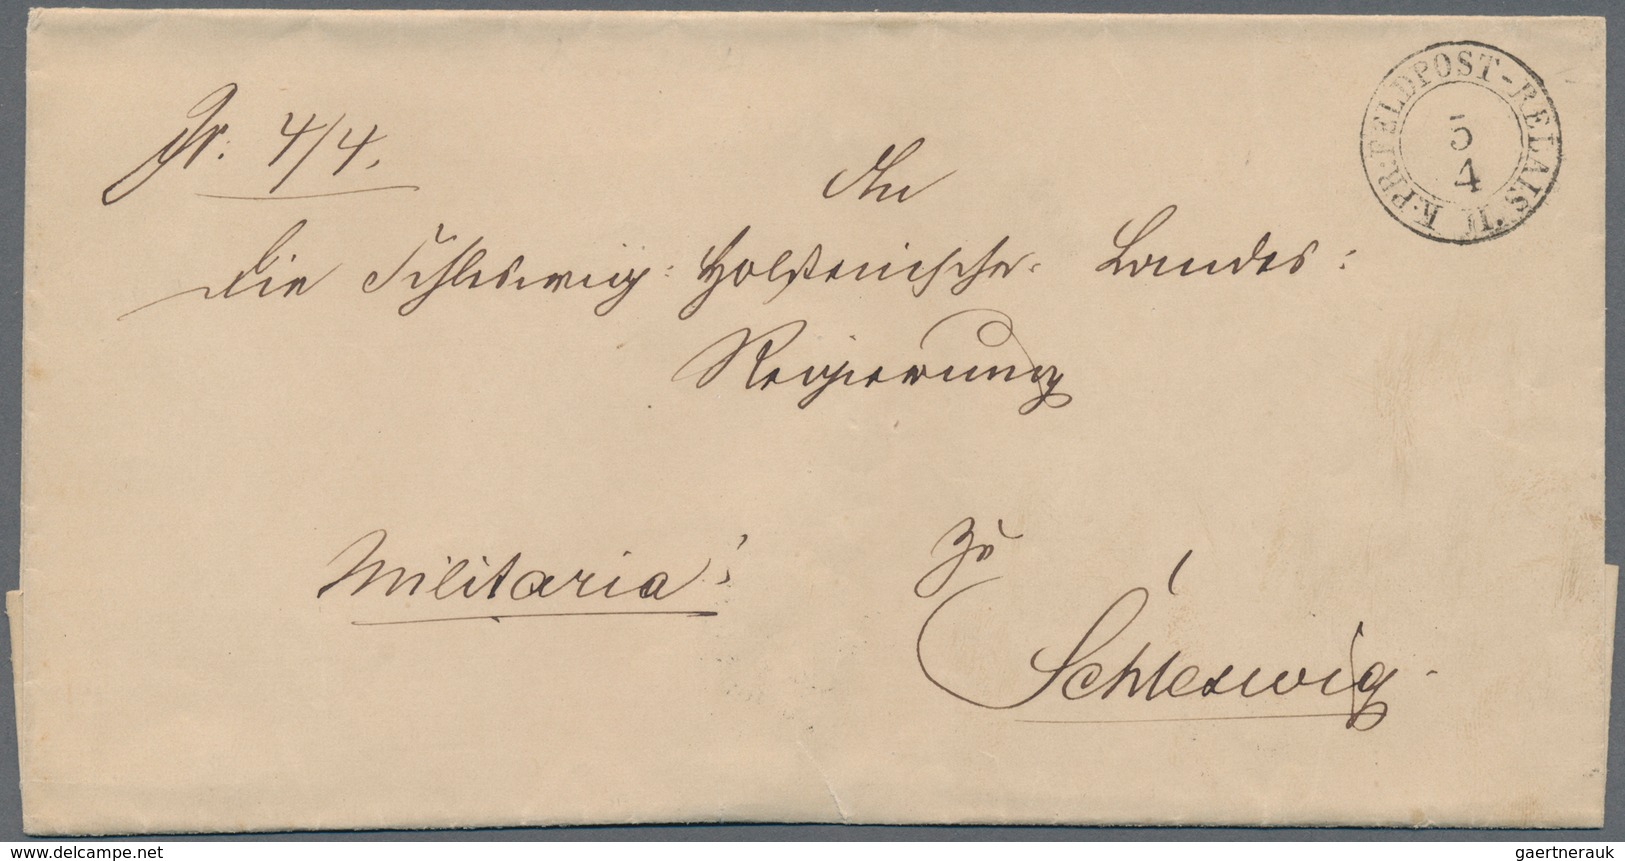 K. PR. FELDPOST-RELAIS. II.
5
4
Fr. 4/4.
An
die Schleswig-Holsteinische Landes-
Regierung
Militaria.
zu
Schleswig
www.delcampe.net
gaertnerauk